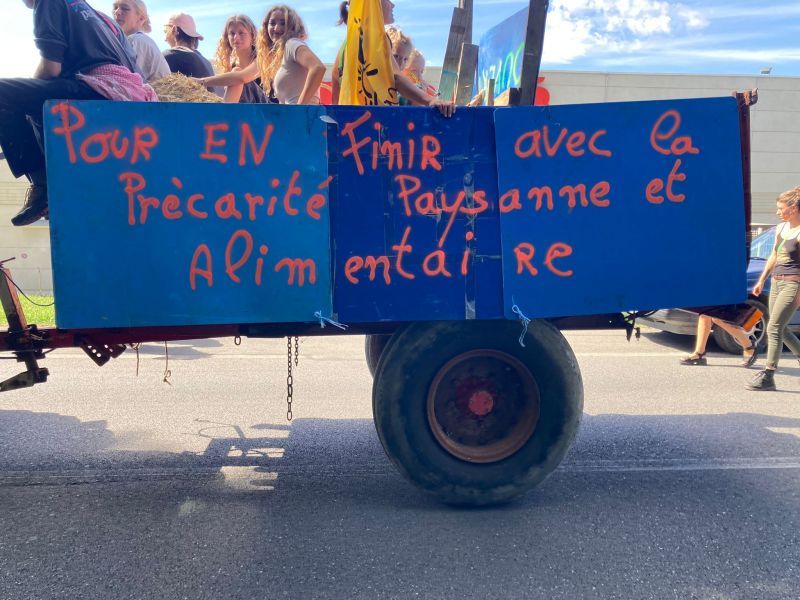 Pour EN Finir avec la
Prècarité Paysanne et
Alimentaire